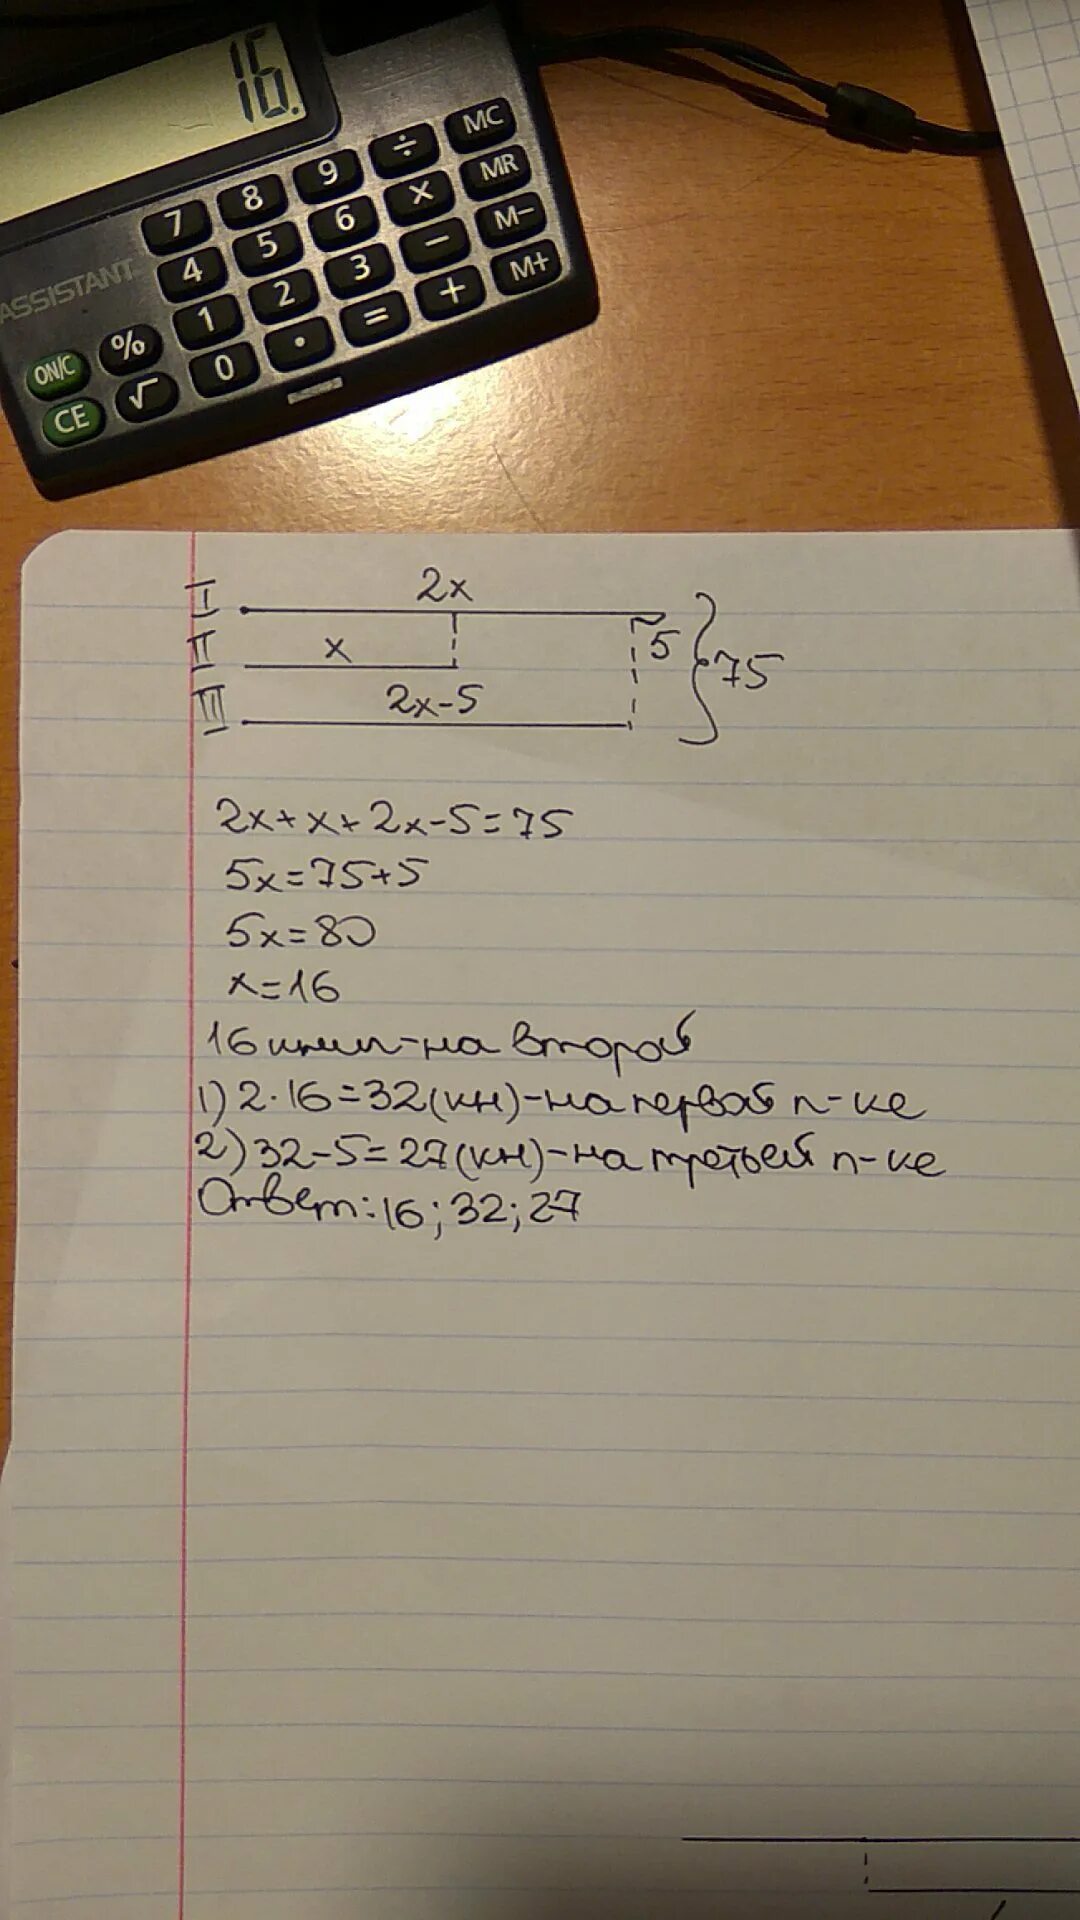 16.
MC
÷
9
8
7
MR
×
6
5
4
M−
−
3
2
1
M+
+
=
•
0
ASSISTANT
%
ON/C
√
CE
I 2x
II x 5 75
III 2x-5
2x+x+2x-5=75
5x=75+5
5x=80
x=16
16 книг-на второй
1) 2·16=32(кн)-на первой п-ке
2) 32-5=27(кн)-на третьей п-ке
Ответ: 16; 32; 27